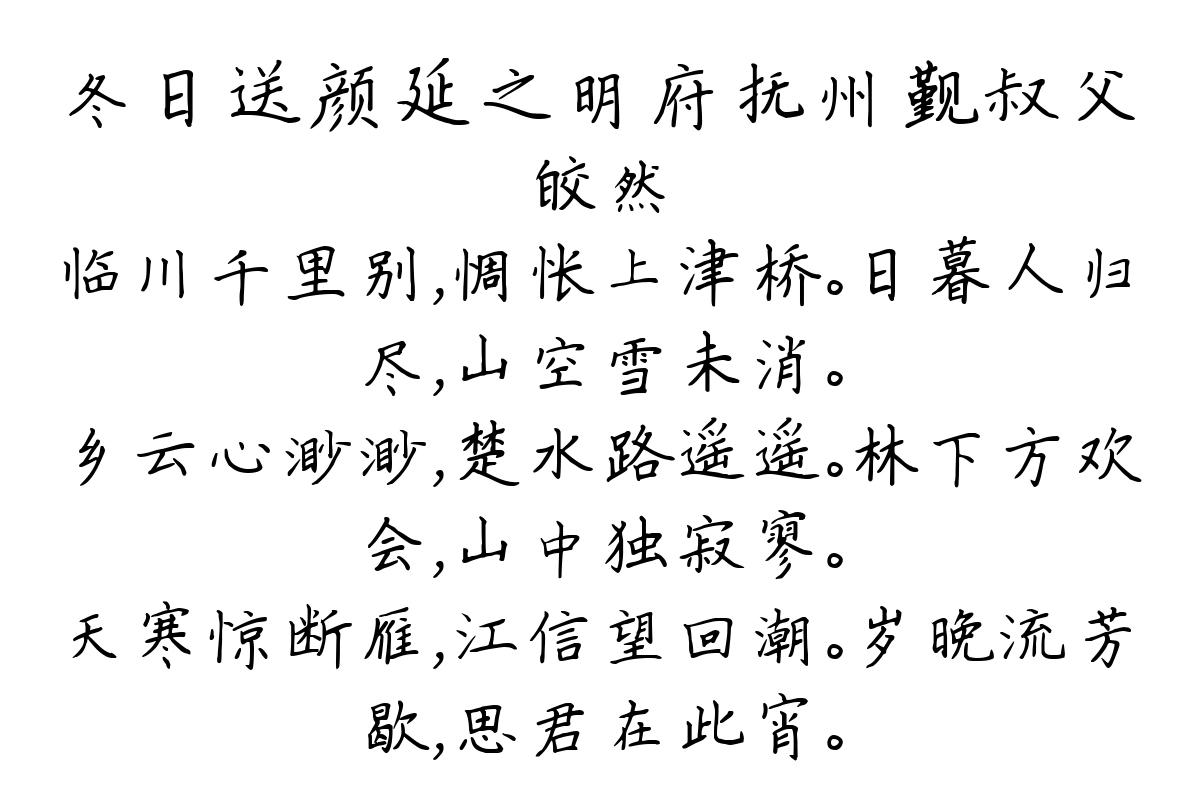 冬日送颜延之明府抚州觐叔父
皎然
临川千里别,惆怅上津桥。日暮人归
尽,山空雪未消。
乡云心渺渺,楚水路遥遥。林下方欢
会,山中独寂寥。
天寒惊断雁,江信望回潮。岁晚流芳
歇,思君在此宵。